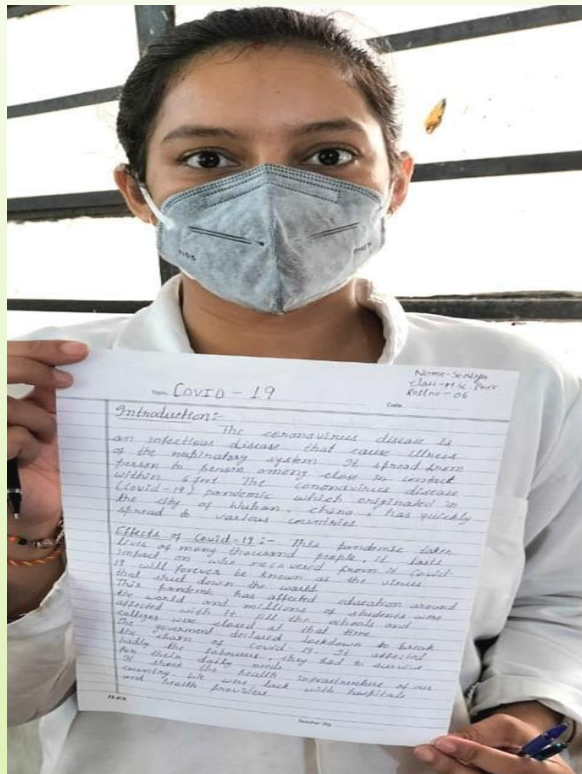 Name-
Class-MSc
Rollno-06
COVID - 19
Date
Introduction:-
The coronavirus disease is
an infectious disease that cause illness
of the respiratory system. It spread from
person to person among close in contact
within 6 feet. The coronavirus disease
(Covid-19) pandemic which originated in
the city of Wuhan, china, has quickly
spread to various countries
Effects of Covid-19:- This pandemic takes
lives of many thousand people. It lasts
impact on who recovered from it Covid-
19 will forever be known as the virus
that shut down the world.
This pandemic has affected education around
the world and millions of students were
affected with it. All the schools and
colleges were closed at that time
The government declared lockdown to break
the chain of Covid-19. It affected
badly the labourers they had to survive
for their daily needs
It shook the health infrastructure of our
country. We were lack with hospitals
and health providers
Teacher Sig.